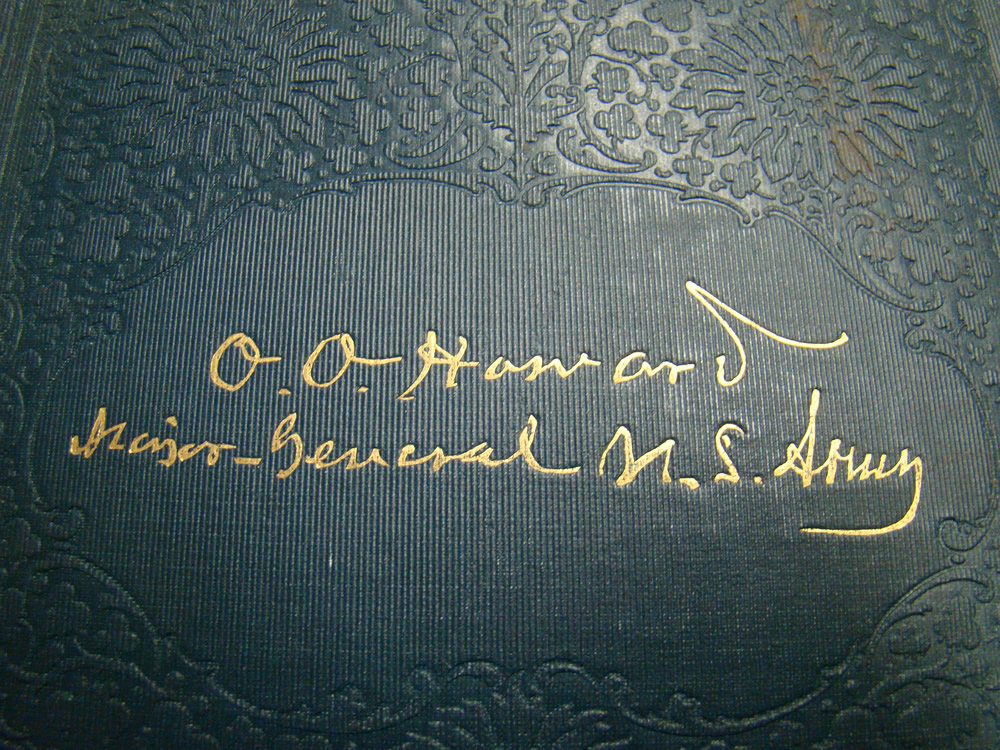 O. O. Howard
Major-General U. S. Army